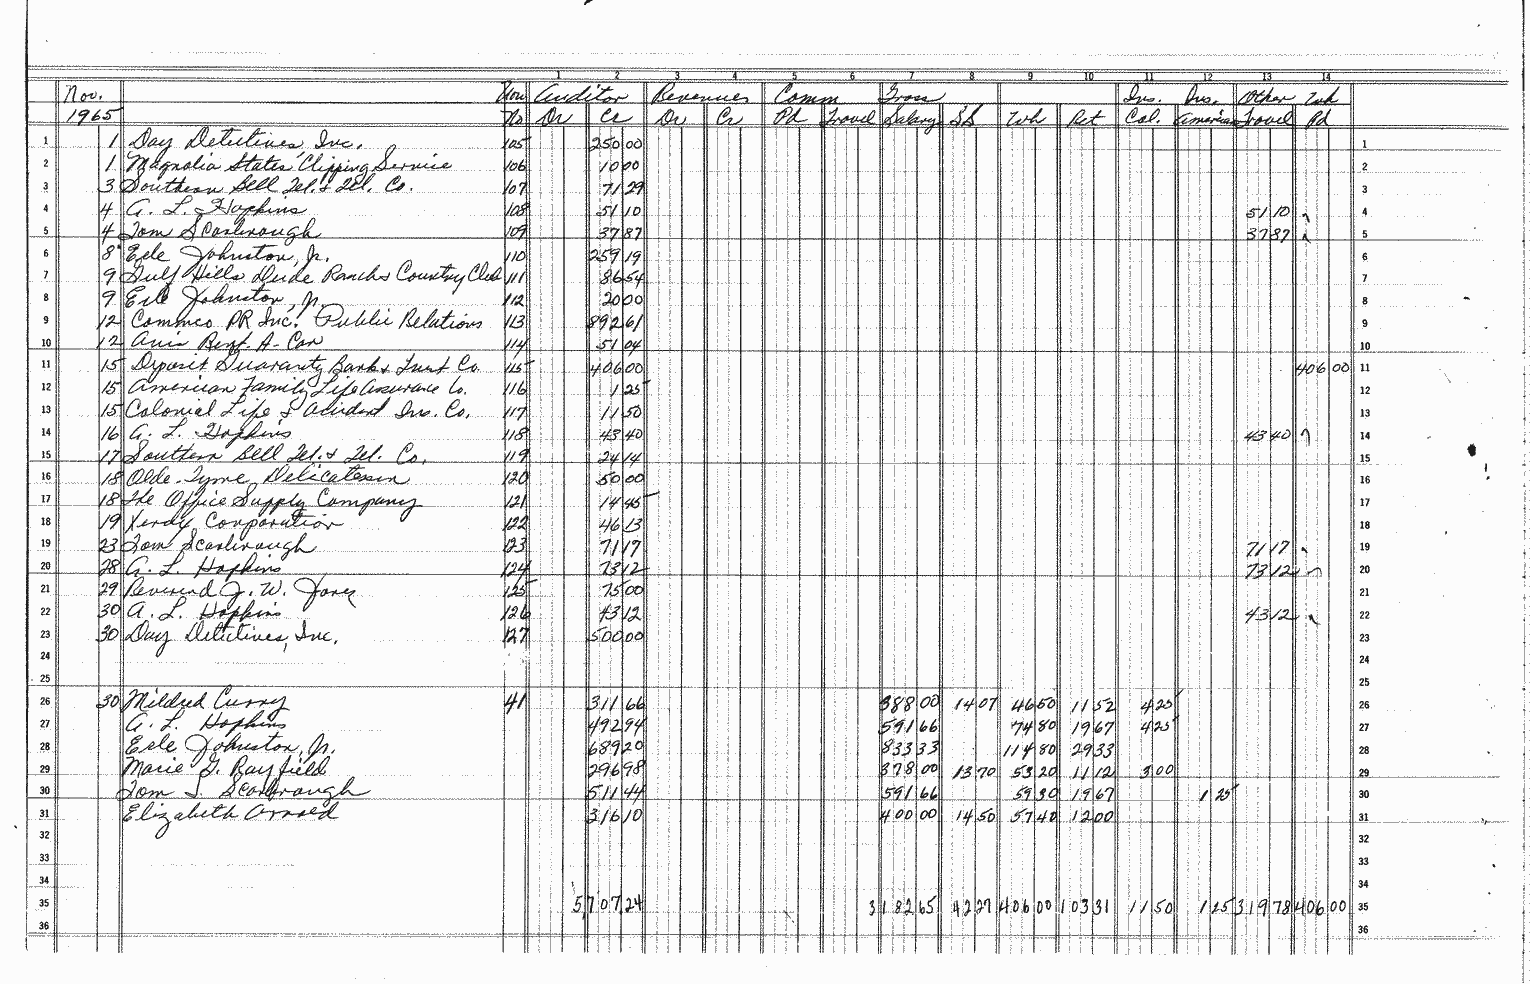 1 2 3 4 5 6 7 8 9 10 11 12 13 14
Nov. Vou Auditor Revenues Comm Gross Ins. Ins. Other Wh
1965 No Dr Cr Dr Cr Pd Travel Salary SS Wh Ret Col. American Travel Pd
1 1 Day Detectives, Inc. 105 250 00 1
2 1 Magnolia States Clipping Service 106 10 00 2
3 3 Southern Bell Tel. & Tel. Co. 107 71 29 3
4 4 A. L. Hopkins 108 51 10 51 10 4
5 4 Tom Scarbrough 109 37 87 37 87 5
6 8 Erle Johnston, Jr. 110 259 19 6
7 9 Gulf Hills Dude Ranch & Country Club 111 86 54 7
8 9 Erle Johnston, Jr. 112 20 00 8
9 12 Commco PR Inc. Public Relations 113 892 61 9
10 12 Avis Rent-A-Car 114 51 04 10
11 15 Deposit Guaranty Bank & Trust Co. 115 406 00 406 00 11
12 15 American Family Life Assurance Co. 116 1 25 12
13 15 Colonial Life & Accident Ins. Co. 117 11 50 13
14 16 A. L. Hopkins 118 43 40 43 40 14
15 17 Southern Bell Tel. & Tel. Co. 119 24 14 15
16 18 Olde Tyme Delicatessen 120 50 00 16
17 18 The Office Supply Company 121 14 45 17
18 19 Xerox Corporation 122 46 13 18
19 23 Tom Scarbrough 123 71 17 71 17 19
20 28 A. L. Hopkins 124 73 12 73 12 20
21 29 Reverend J. W. Jones 125 75 00 21
22 30 A. L. Hopkins 126 43 12 43 12 22
23 30 Day Detectives, Inc. 127 500 00 23
24 24
25 25
26 30 Mildred Curry 41 311 66 388 00 14 07 46 50 11 52 4 25 26
27 A. L. Hopkins 492 94 591 66 74 80 19 67 4 25 27
28 Erle Johnston, Jr. 689 20 833 33 114 80 29 33 28
29 Marie G. Rayfield 296 98 378 00 13 70 53 20 11 12 3 00 29
30 Tom S. Scarbrough 511 44 591 66 59 30 19 67 1 25 30
31 Elizabeth Arnold 316 10 400 00 14 50 57 40 12 00 31
32 32
33 33
34 34
35 5,707 24 3182 65 42 27 406 00 103 31 11 50 1 25 319 78 406 00 35
36 36